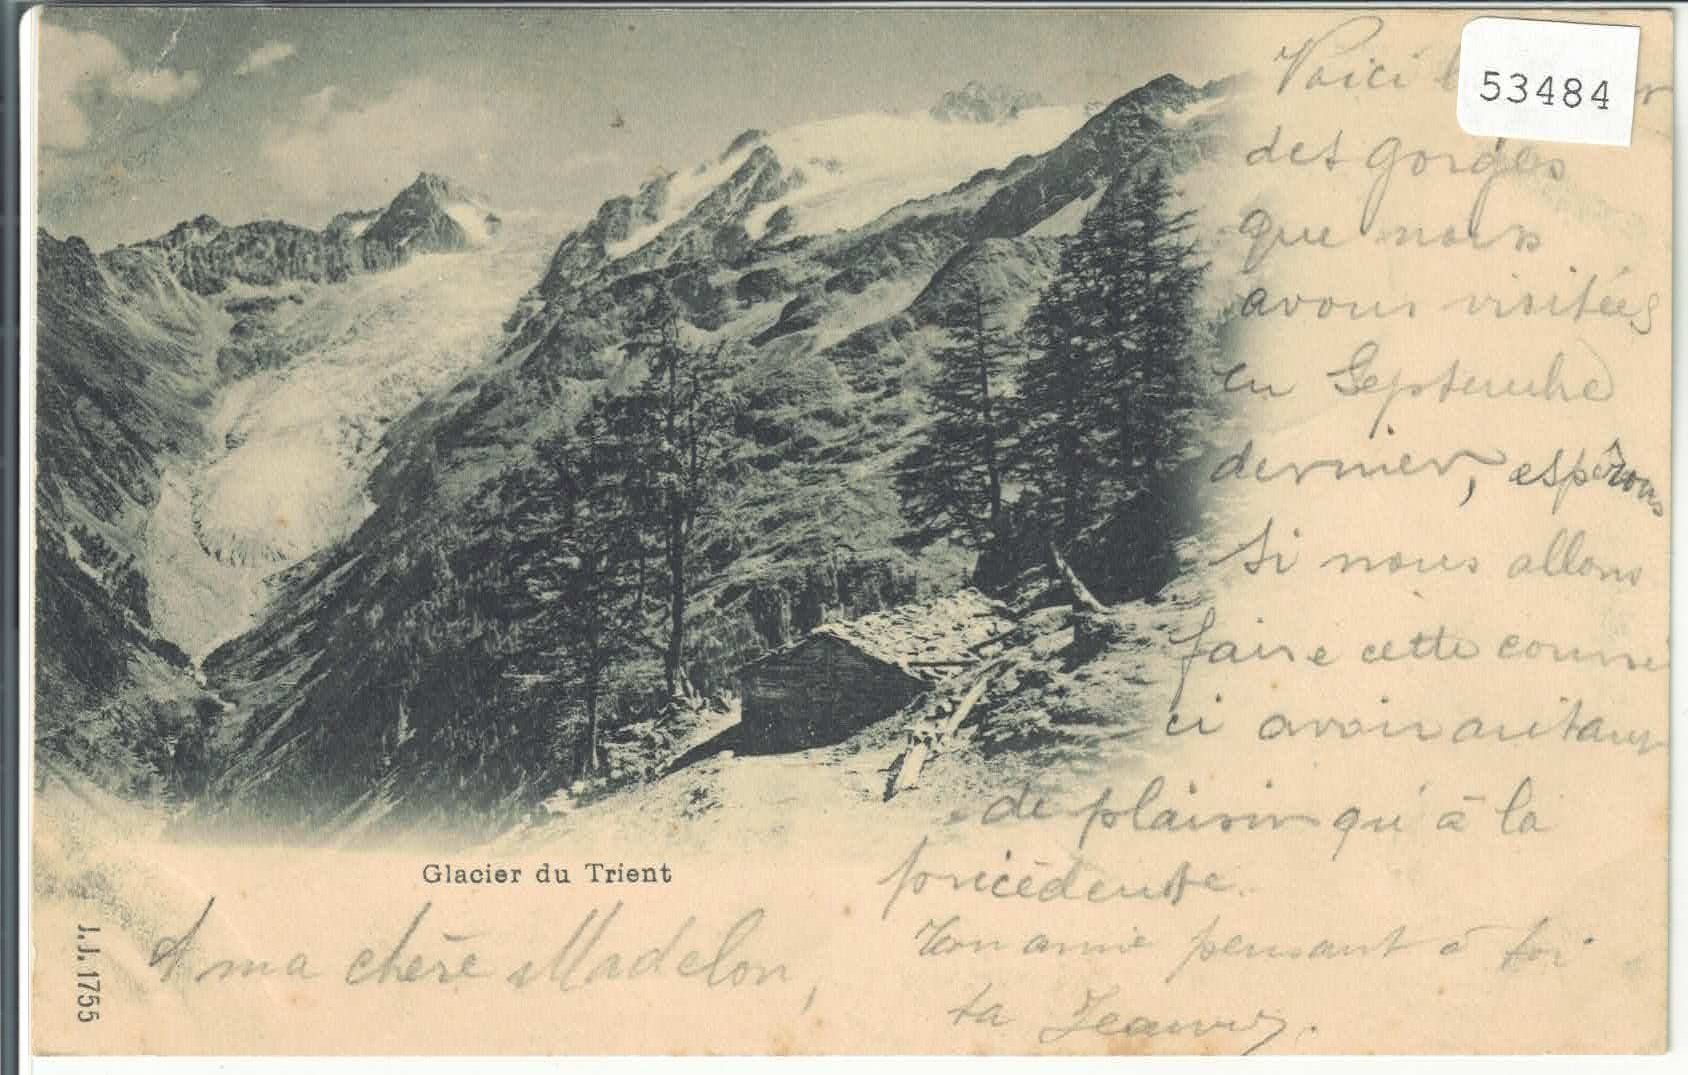 53484
Voici
des gorges
que nous
avons visitées
en Septembre
dernier, espérons
si nous allons
faire cette course
ci avoir autant
de plaisir qu'à la
précédente.
Ton amie pensant à toi
ta Jeanny.
Glacier du Trient
A ma chère Madelon,
J.J. 1755